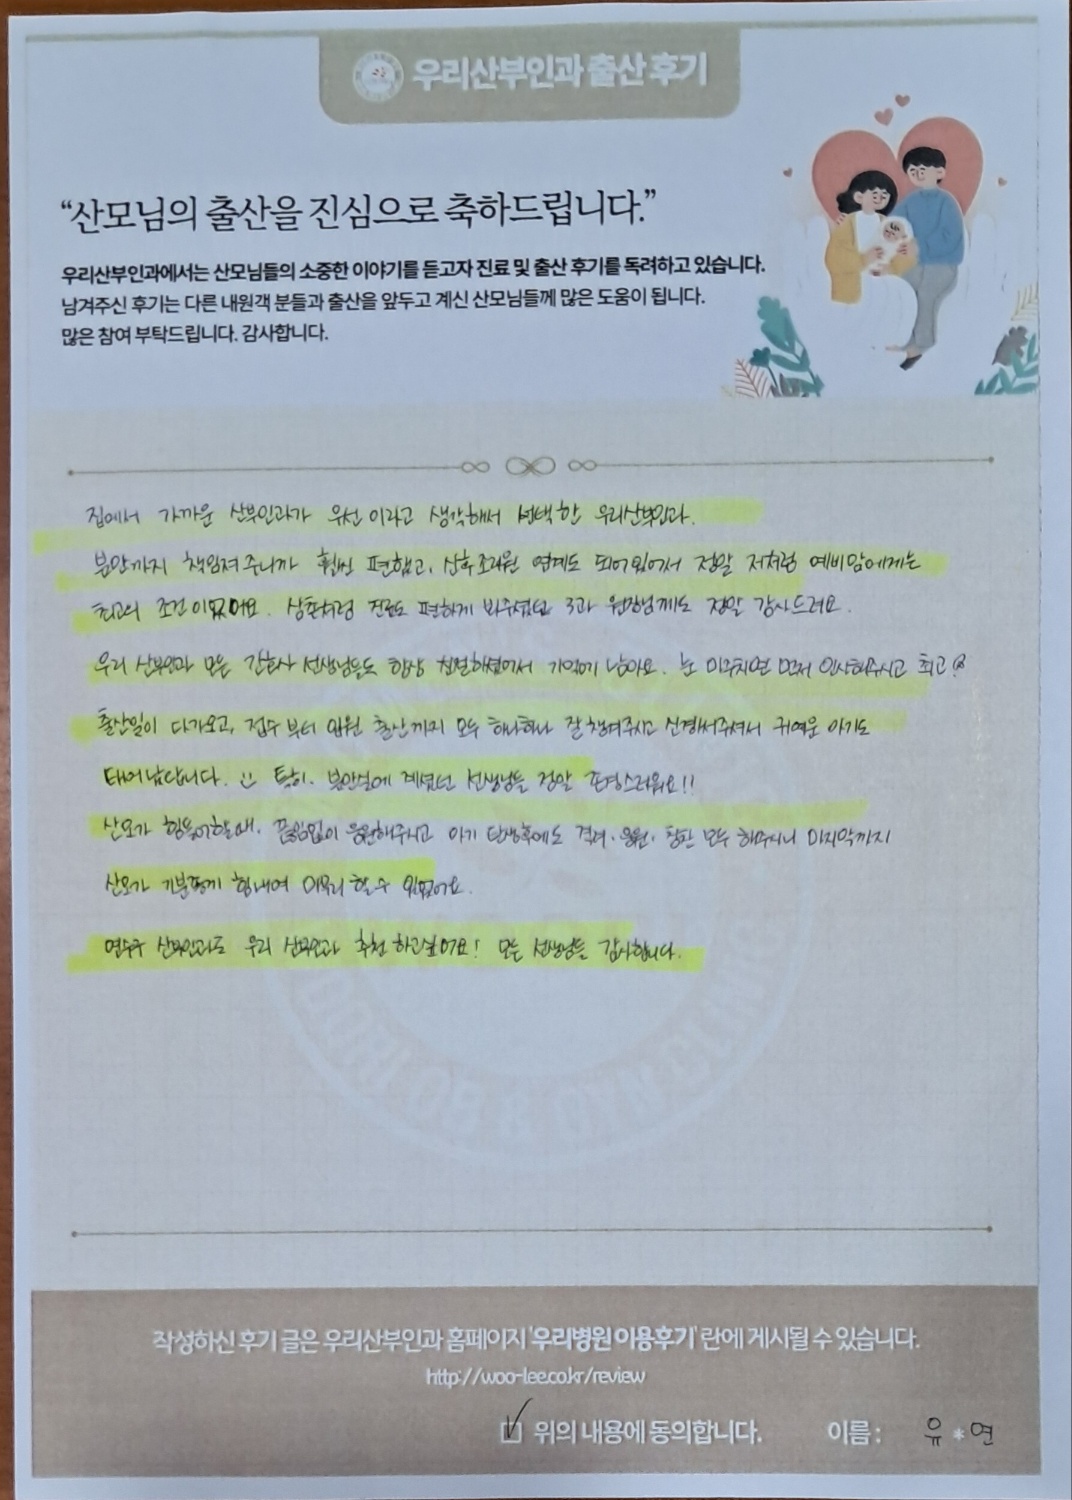 우리산부인과 출산 후기
“산모님의 출산을 진심으로 축하드립니다.”
우리산부인과에서는 산모님들의 소중한 이야기를 듣고자 진료 및 출산 후기를 독려하고 있습니다.
남겨주신 후기는 다른 내원객 분들과 출산을 앞두고 계신 산모님들께 많은 도움이 됩니다.
많은 참여 부탁드립니다. 감사합니다.
집에서 가까운 산부인과가 우선이라고 생각해서 선택한 우리산부인과.
분만까지 책임져주니까 훨씬 편했고, 산후조리원 연계도 되어있어서 정말 저처럼 예비맘에게는
최고의 조건이었어요. 삼촌처럼 진료도 편하게 봐주셨던 3과 원장님께도 정말 감사드려요.
우리 산부인과 모든 간호사 선생님들도 항상 친절하셨어서 기억에 남아요. 눈 마주치면 먼저 인사해주시고 최고
출산일이 다가오고, 접수부터 입원 출산까지 모두 하나하나 잘 챙겨주시고 신경써주셔서 귀여운 아기도
태어났답니다. 특히, 분만실에 계셨던 선생님들 정말 존경스러워요!!
산모가 힘들어할때, 끊임없이 응원해주시고 아기 탄생후에도 격려·응원·칭찬 모두 해주시니 마지막까지
산모가 기분좋게 힘내여 마무리 할 수 있었어요.
연수구 산부인과도 우리 산부인과 추천하고싶어요! 모든 선생님들 감사합니다.
WOORI OB & GYN CLINIC
작성하신 후기 글은 우리산부인과 홈페이지 '우리병원 이용후기' 란에 게시될 수 있습니다.
http://woo-lee.co.kr/review
위의 내용에 동의합니다. 이름 : 유*연